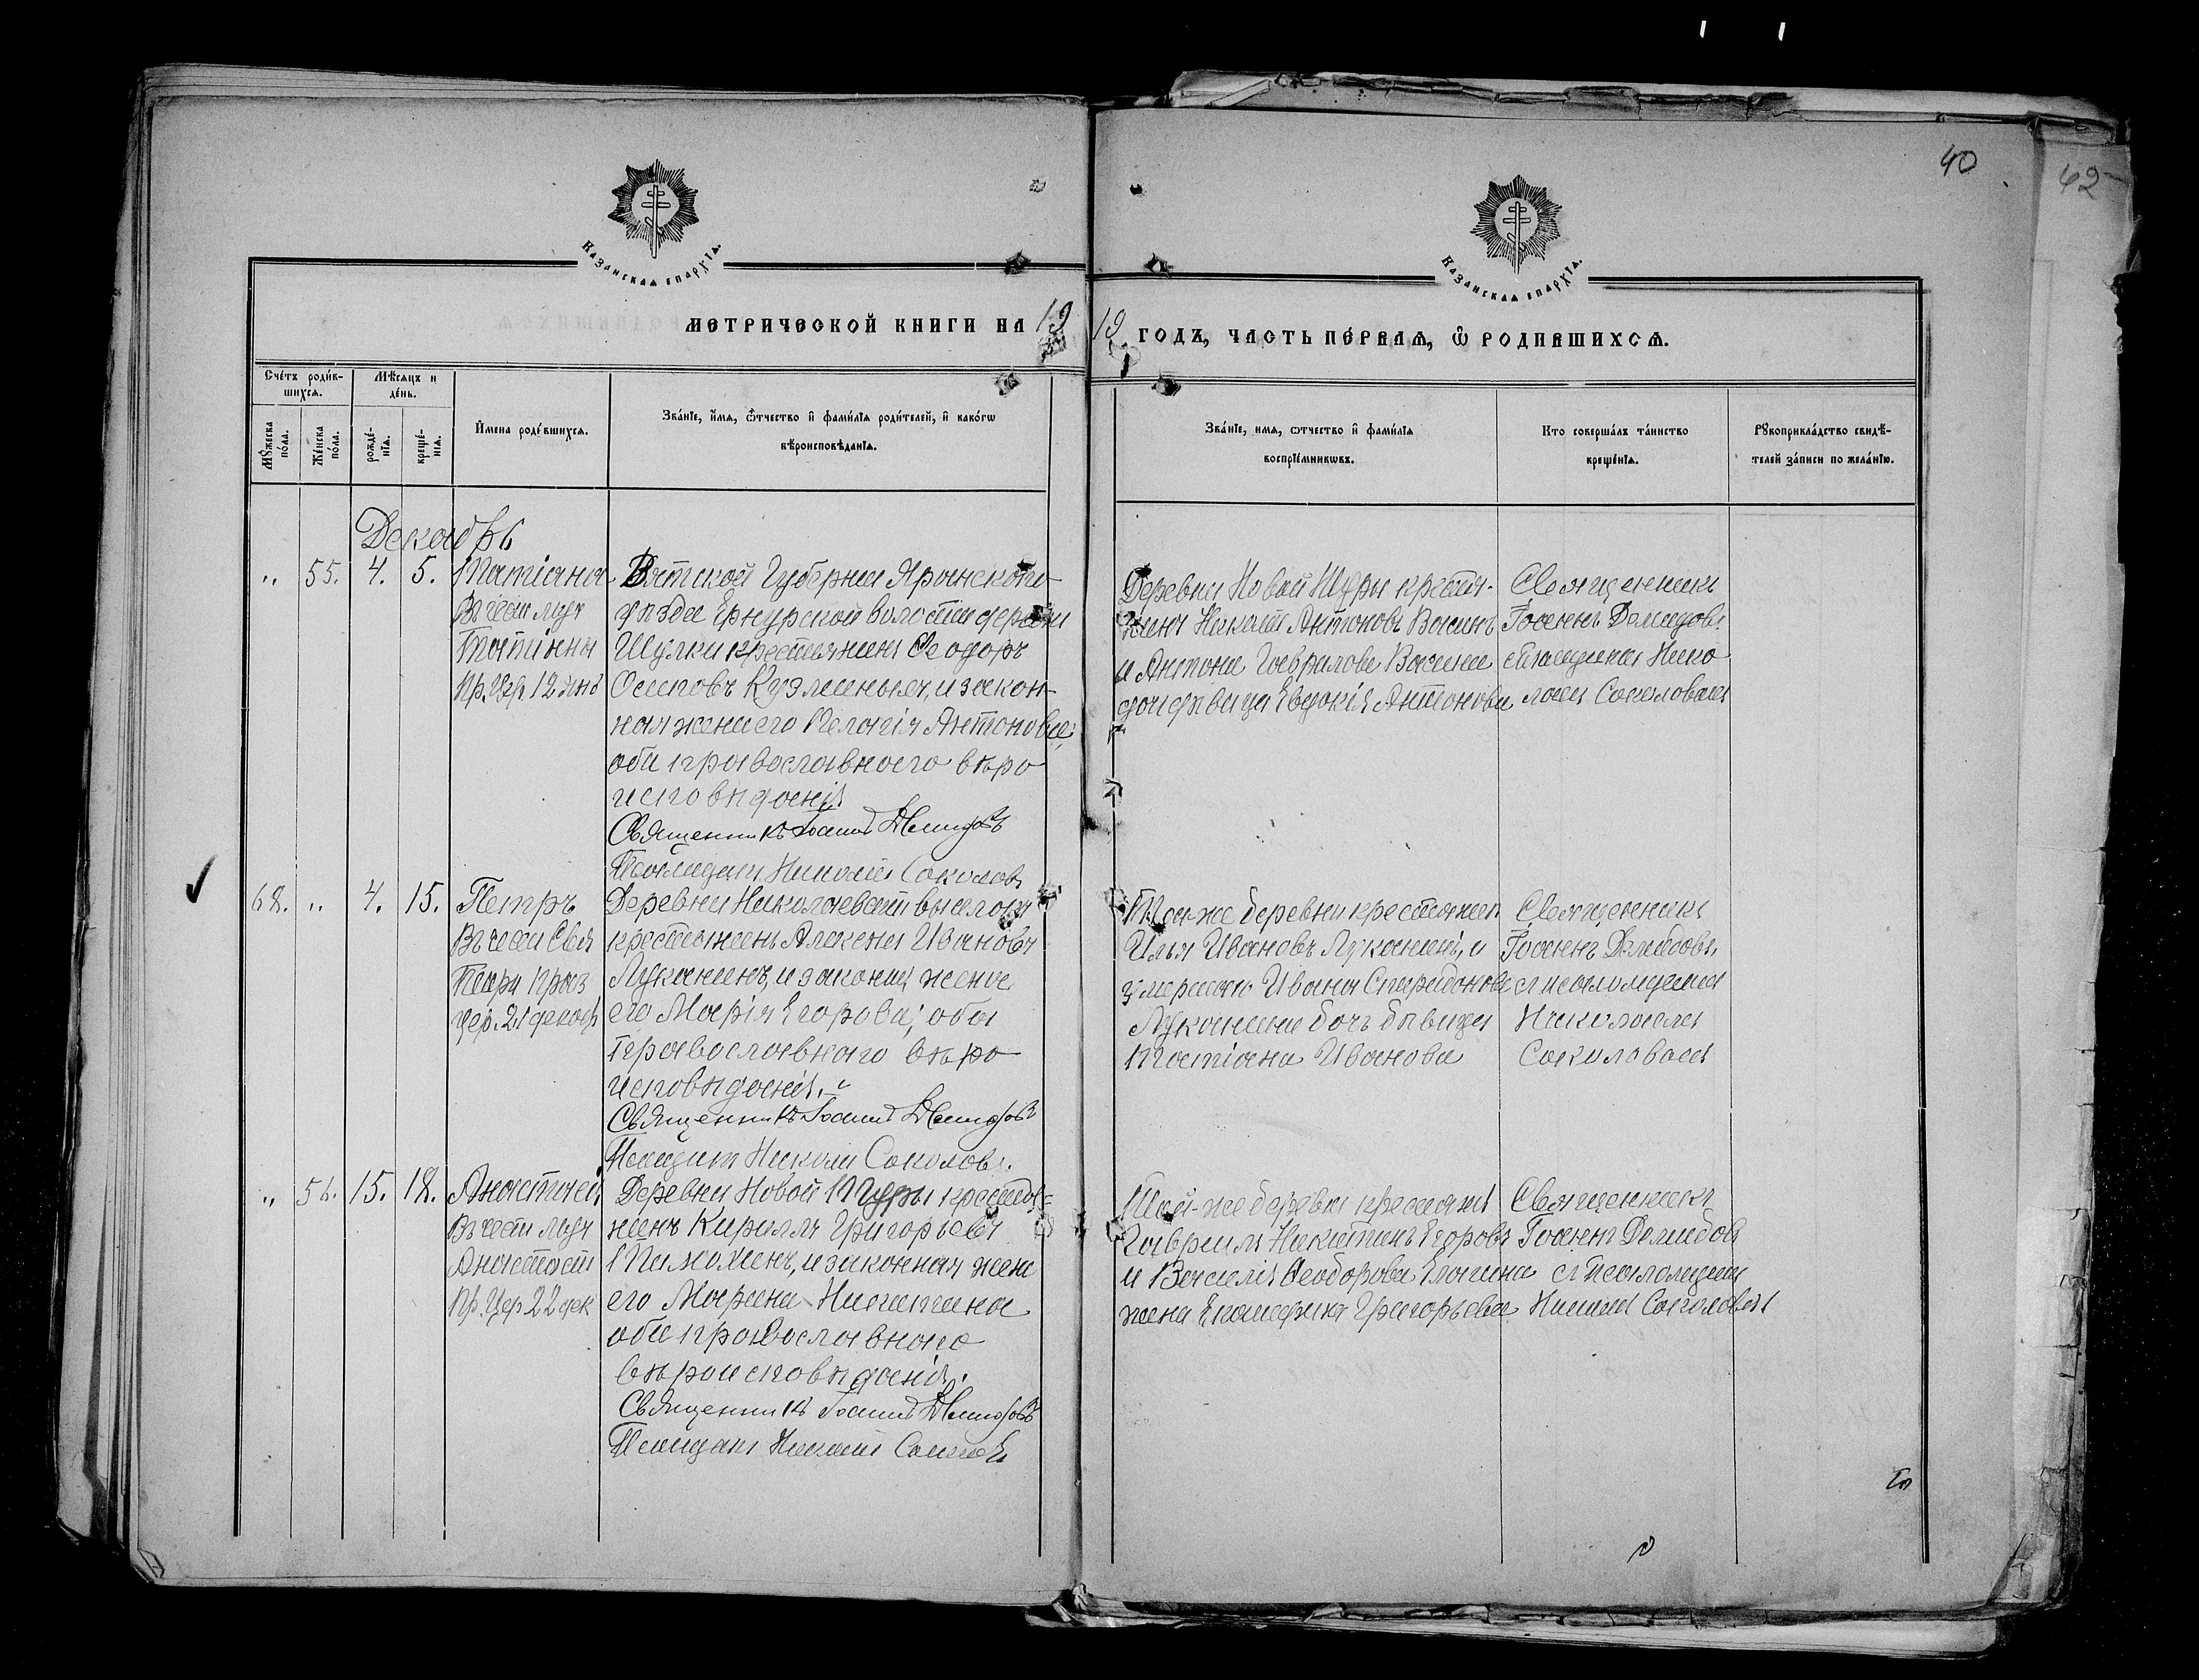 40
42
Казанская епархїѧ.
Казанская епархїѧ.
МЕТРИЧЕСКОЙ КНИГИ НА 19
19 ГОДЪ, ЧАСТЬ ПЕРВАЯ, Ѽ РОДИВШИХСЯ.
Счетъ родив-
шихся.
Мѣсяцъ и
день.
Мꙋжеска
пола.
Женска
пола.
рожде-
нїя.
креще-
нїя.
Имена родившихся.
Званїе, имя, ѿчество и фамилїя родителей, и какогѡ
вѣроисповѣданїя.
Званїе, имя, ѿчество и фамилїя
воспрїемникѡвъ.
Кто совершалъ таинство
крещенїя.
Рꙋкоприкладство свидѣ-
телей записи по желанїю.
Декабрь
,, 55. 4. 5. Татіана
Въ честь муч
Татіаны
Вятской Губерніи Яранскаго
уѣзда Ернурской волости дерев
Шулки крестьянинъ Ѳеодоръ
Осиповъ Кузминыхъ, и закон-
ная жена его Пелагія Антонова
оба православнаго вѣро
исповѣданія
Священникъ Іоаннъ Демидовъ
Псаломщикъ Николай Соколовъ
Деревни Новой крестья-
нинъ Антоновъ Васинъ
и Антона Гаврилова Васина
дочь дѣвица Евдокія Антонова
Священникъ
Іоаннъ Демидовъ
Нико
лаемъ Соколовымъ
68. ,, 4. 15. Петръ
Въ честь Свя
Петра
21 декаб
Деревни Николаевскій выселокъ
крестьянинъ Ивановъ
Луканинъ, и законная жена
его Марія Егорова; оба
православнаго вѣро
исповѣданія.
Священникъ Іоаннъ Демидовъ
Николай Соколовъ.
Той-же деревни крестьянин
Илья Ивановъ Луканинъ, и
умершаго Ивана Спиридонова
Луканина дочь дѣвица
Татіана Иванова
Священникъ
Іоаннъ Демидовъ,
съ псаломщикомъ
Николаемъ
Соколовымъ
,, 56. 15. 18. Анастасія
Въ честь муч
Анастасіи
Пр. Цер 22 дек
Деревни Новой крестья=
нинъ Кириллъ Григорьевъ
Пахомкинъ, и законная жена
его Марина Никитина
оба православнаго
вѣроисповѣданія.
Священникъ Іоаннъ Демидовъ
Псаломщикъ Николай Соколовъ
Той-же деревни крестьянинъ
Гавриилъ Никитинъ Егоровъ
и Василія Ѳеодорова
жена Екатерина Григорьева
Священникъ
Іоаннъ Демидовъ
съ Псаломщикомъ
Соколовымъ